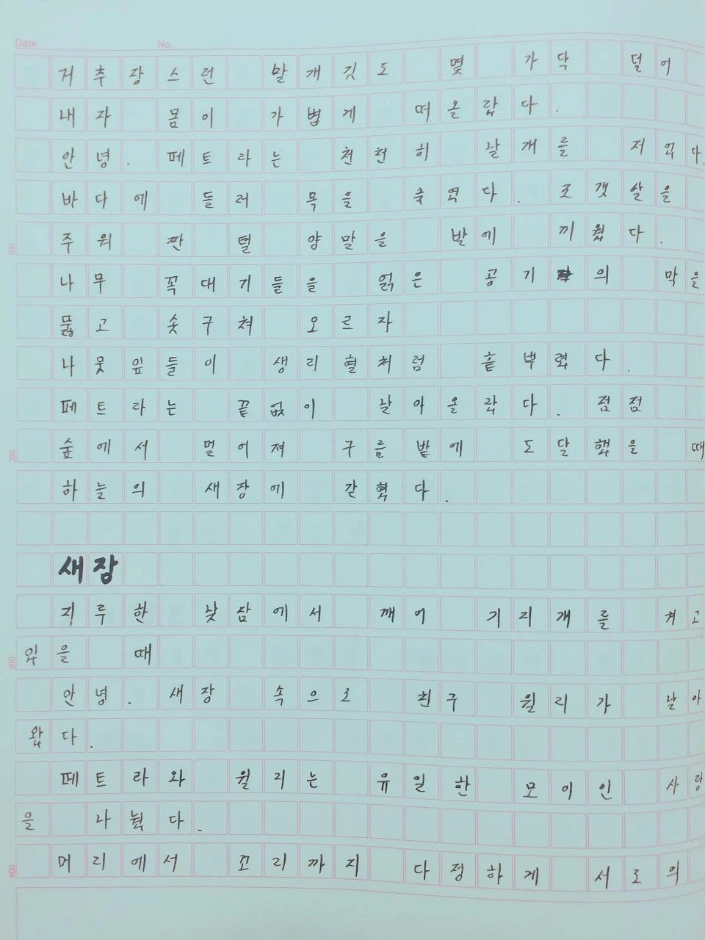 Date. No.
거추장스런 날개깃도 몇 가닥 덜어
내자 몸이 가볍게 떠올랐다.
안녕. 페트라는 천천히 날개를 저었다.
바다에 들러 목을 축였다. 조갯살을
주워 짠 털 양말을 발에 끼웠다.
나무 꼭대기들을 얽은 공기의 막을
뚫고 솟구쳐 오르자
나뭇잎들이 생리혈처럼 흩뿌렸다.
페트라는 끝없이 날아올랐다. 점점
숲에서 멀어져 구름밭에 도달했을 때
하늘의 새장에 갇혔다.
새잠
지루한 낮잠에서 깨어 기지개를 켜고
있을 때
안녕. 새장 속으로 친구 윌리가 날아
왔다.
페트라와 윌리는 유일한 모이인 사랑
을 나눴다.
머리에서 꼬리까지 다정하게 서로의